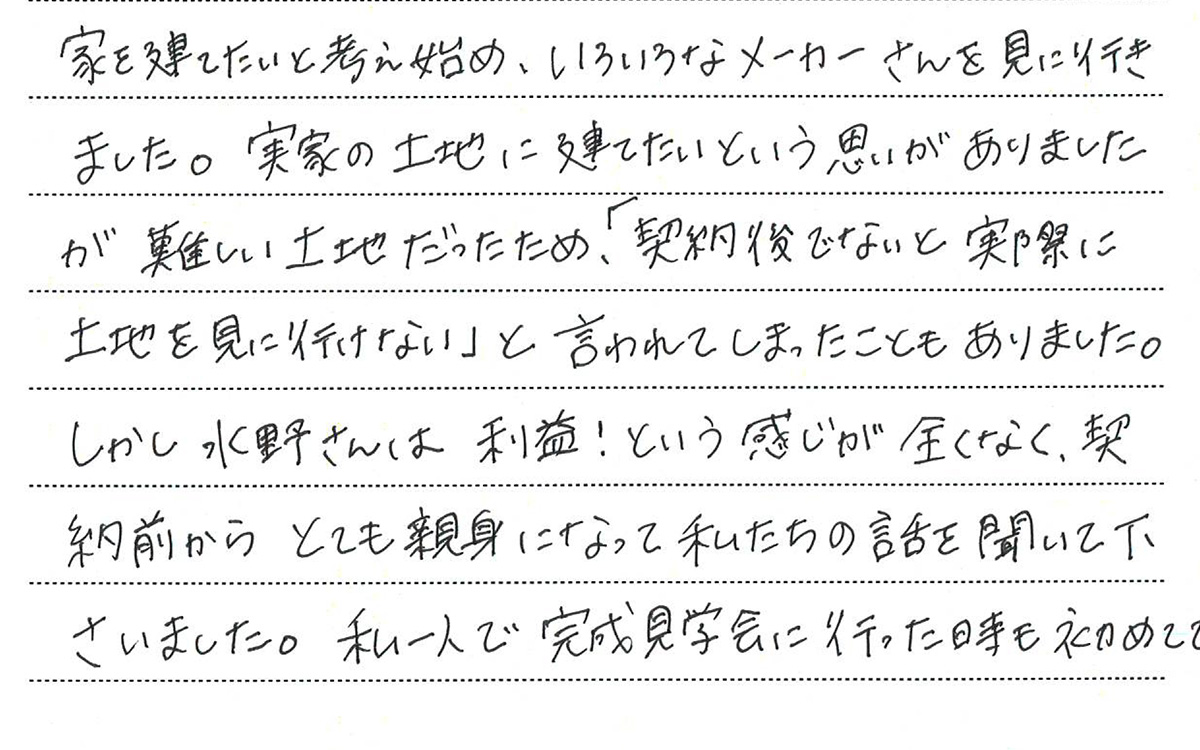 家を建てたいと考え始め、いろいろなメーカーさんを見に行き
ました。実家の土地に建てたいという思いがありました
が難しい土地だったため、「契約後でないと実際に
土地を見に行けない」と言われてしまったこともありました。
しかし水野さんは利益!という感じが全くなく、契
約前からとても親身になって私たちの話を聞いて下
さいました。私一人で完成見学会に行った時も初めてで